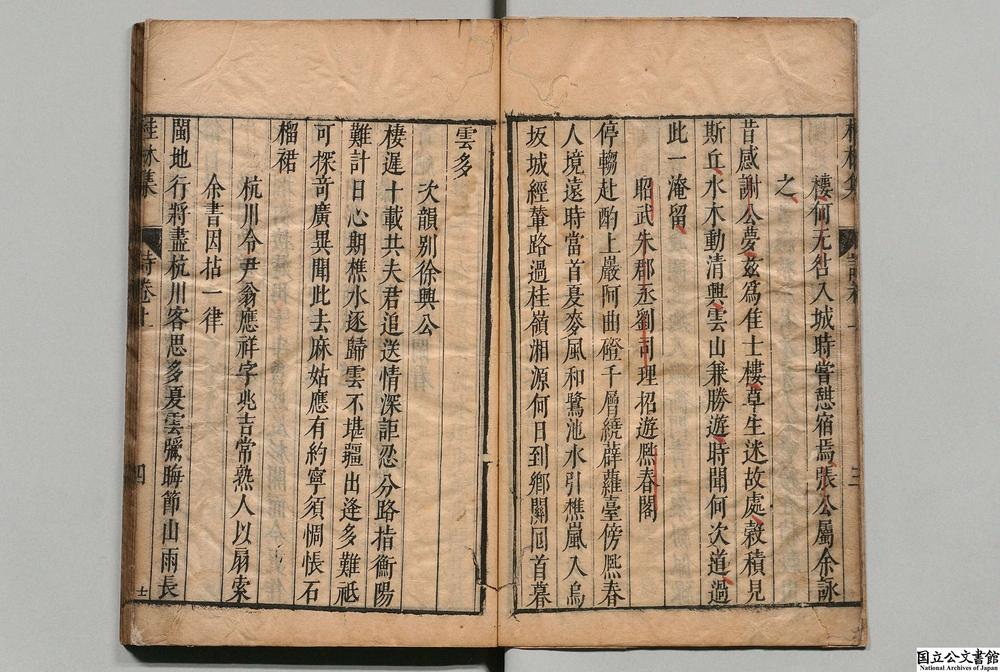 樓何无咎入城時嘗憇宿焉張公屬余詠
之
昔感謝公夢茲爲隹士樓草生迷故處榖積見
斯丘水木動清興雲山兼勝遊時聞何次道過
此一淹留
昭武朱郡丞劉司理招遊熈春閣
停轓赴酌上巖阿曲磴千層繞薜蘿臺傍熈春
人境遠時當首夏麥風和鷺池水引樵嵐入烏
坂城經輦路過桂嶺湘源何日到鄉關囘首暮
雲多
次韻别徐興公
棲遲十載共夫君追送情深詎忍分路指衡陽
難計日心期樵水逐歸雲不堪疆出逢多難祇
可探竒廣異聞此去麻姑應有約寧須惆悵石
榴裙
杭川令尹翁應祥字兆吉常熟人以扇索
余書因拈一律
閩地行將盡杭川客思多夏雲黴晦節山雨長
桂林集 詩卷十 四
国立公文書館
National Archives of Japan